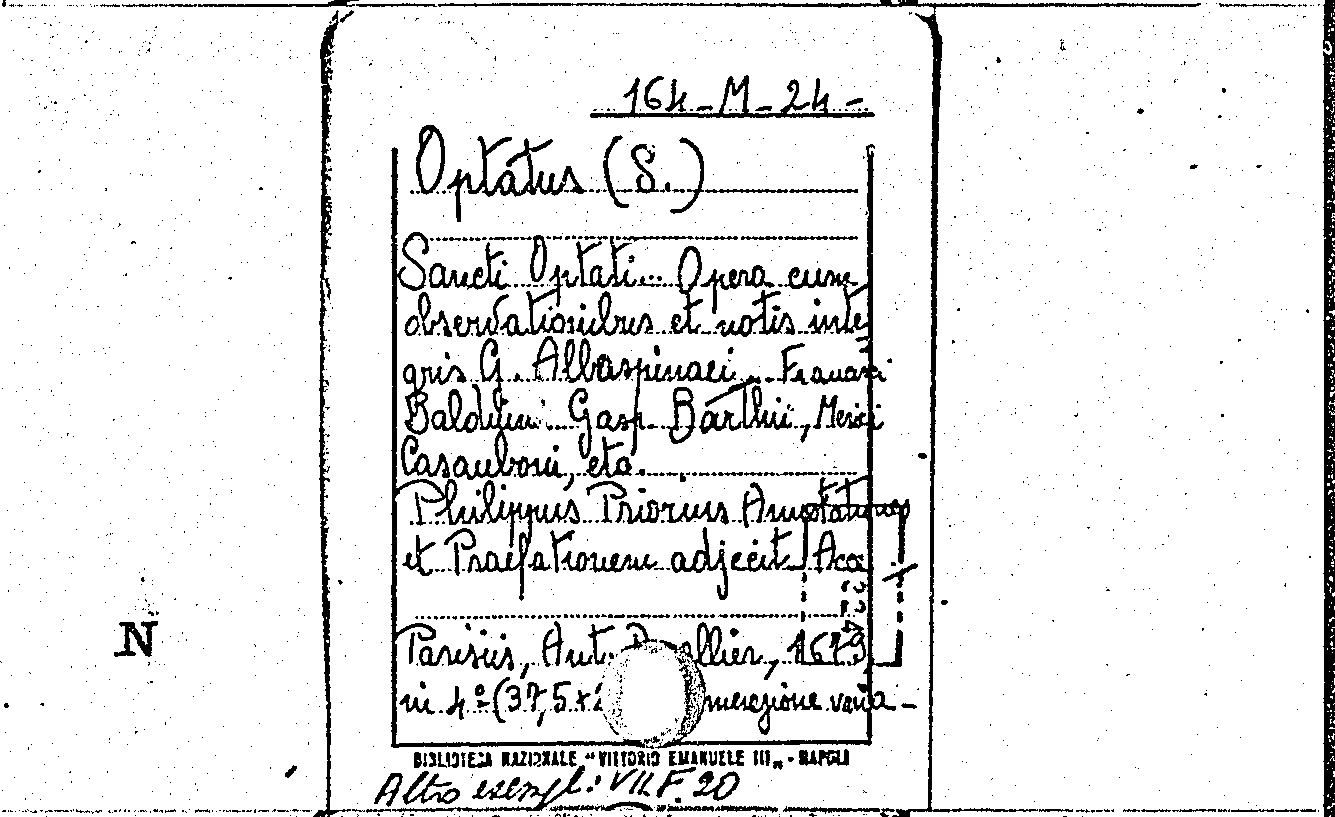 164-M-24-
Optatus (S.)
Sancti Optati... Opera cum
observationibus et notis inte
gris G. Albaspinaei... Francisci
Balduini... Gasp. Barthii, Merici
Casauboni, etc.
Philippus Priorius Annotationes
et Praefationem adjecit. Acce
Parisiis, Ant. 1679,
in 4º (37,5+ merazione varia -
N
BIBLIOTECA NAZIONALE "VITTORIO EMANUELE III" - NAPOLI
Altro esempl.: VII. F. 20